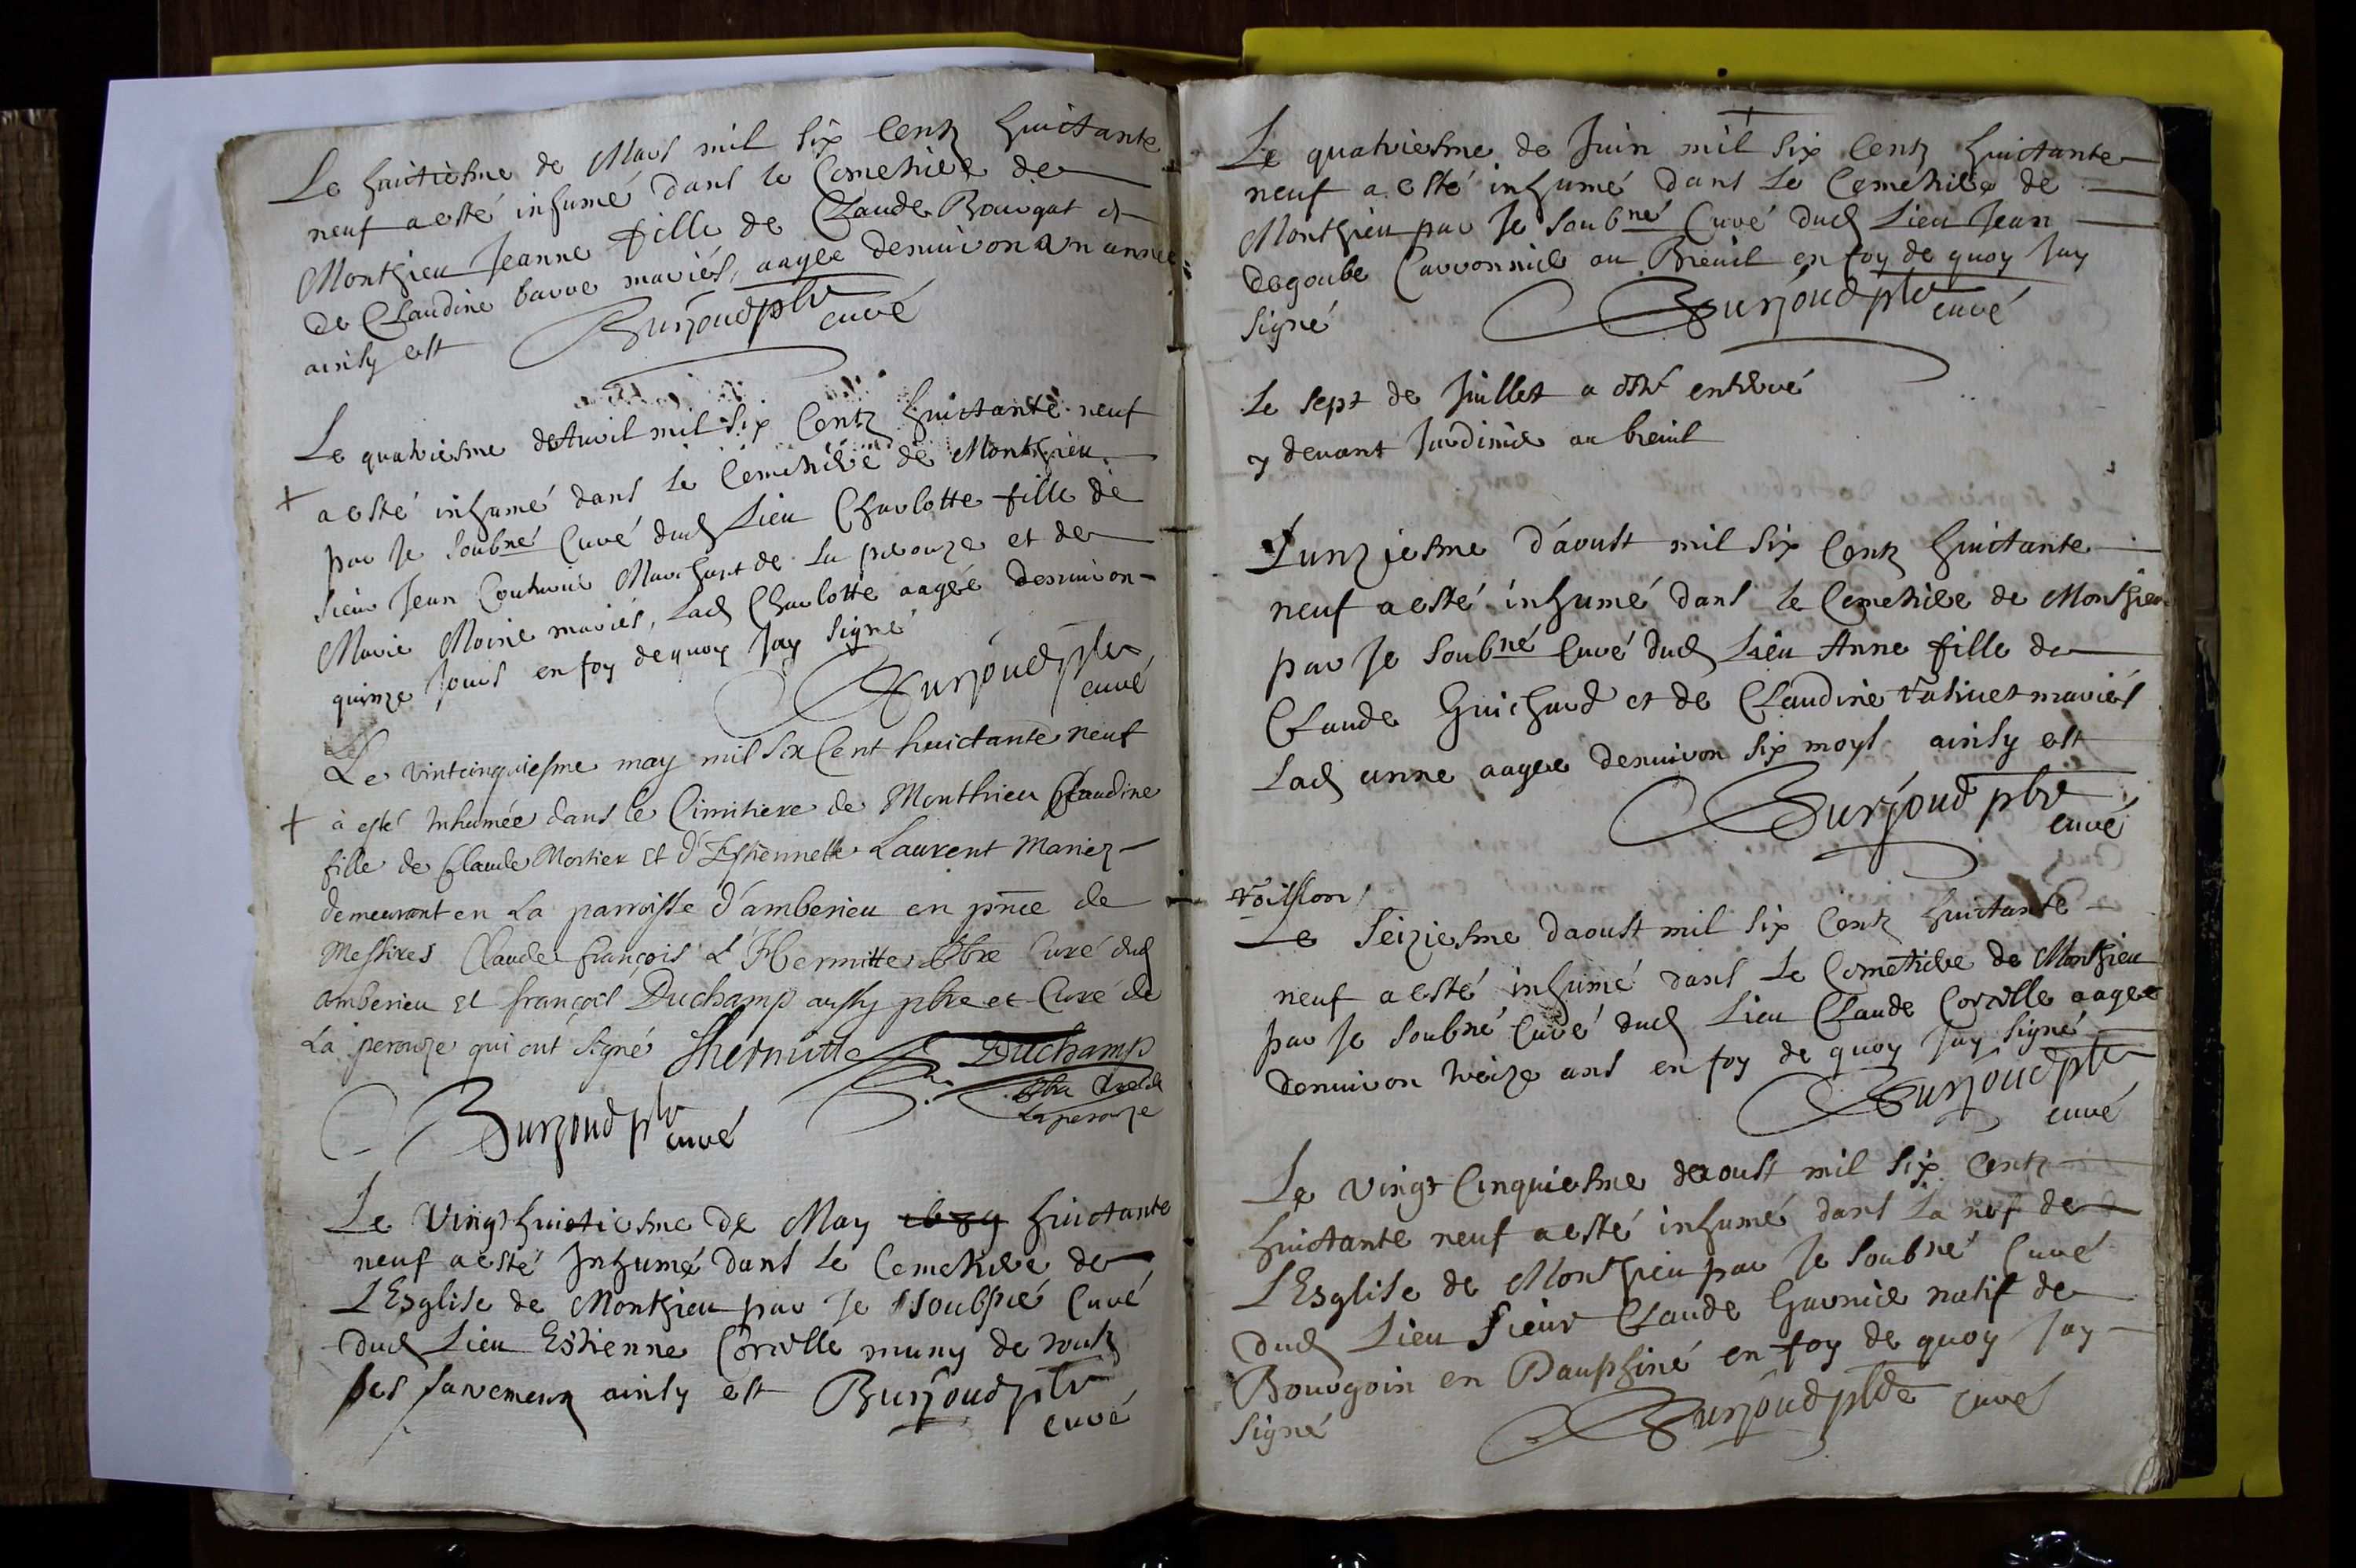 Le huictiesme de Mars mil six Centz huictante
neuf a esté inhumé dans le Cemetiere de
Monthieu Jeanne fille de Claude Bourgat et
de Claudine barre mariés, aagée denuiron un année
ainsy est Burjoud pbr
curé
Le quatriesme de Auril mil six Centz huictante neuf
+ a esté inhumé dans le Cemetiere de Monthieu
par Je soubné Curé dud Lieu Charlotte fille de
sieur Jean Couturier Marchant de La perouze et de
Marie Moine mariés, Lad Charlotte aagée denuiron
quinze Jours en foy de quoy Jay signé
Burjoud pbr
curé
Le vintcinquiesme may mil six Cent huictante neuf
+ à esté Inhumée dans le Cimitiere de Monthieu Claudine
fille de Claude Mortier et d'Estiennette Laurent Mariez
demeurant en La parroisse d'amberieu en pnce de
Messires Claude françois L'Hermitte Pbre Curé dud
amberieu et françois Duchamp aussy pbre et Curé de
La perouze qui ont signé Lhermitte Duchamp
Pbre Curé de
Laperouze
Burjoud pbr
curé
Le Vingt huictiesme de May 1689 huictante
neuf a esté Inhumé dans le Cemetiere de
L'Esglise de Monthieu par Je soubsné Curé
dud Lieu Estienne Corcelle muny de toutz
ses sacrementz ainsy est Burjoud pbr
curé
Le quatriesme de Juin mil six Centz huictante
neuf a esté inhumé dans Le Cemetiere de
Monthieu par Je soubné Curé dud Lieu Jean
degoube Carronnier au Breuil en foy de quoy Jay
signé Burjoud pbr
curé
Le sept de Juillet a esté enterré
y deuant Jardinier au breuil
L'unziesme d'aoust mil six Centz huictante
neuf a esté inhumé dans le Cemetiere de Monthieu
par Je soubné Curé dud Lieu Anne fille de
Claude Guichard et de Claudine mariés
Lad anne aagée denuiron six moys ainsy est
Burjoud pbr
curé
Le seiziesme daoust mil six Centz huictante
neuf a esté inhumé dans Le Cemetiere de Monthieu
par Je soubné Curé dud Lieu Claude Corcelle aagée
denuiron treize ans en foy de quoy Jay signé
Burjoud pbr
curé
Le vingt Cinquiesme de aoust mil six Centz
huictante neuf a esté inhumé dans La nef de
L'Esglise de Monthieu par Je soubné Curé
dud Lieu sieur Claude Garnier natif de
Bourgoin en Dauphiné en foy de quoy Jay
signé Burjoud pbre curé